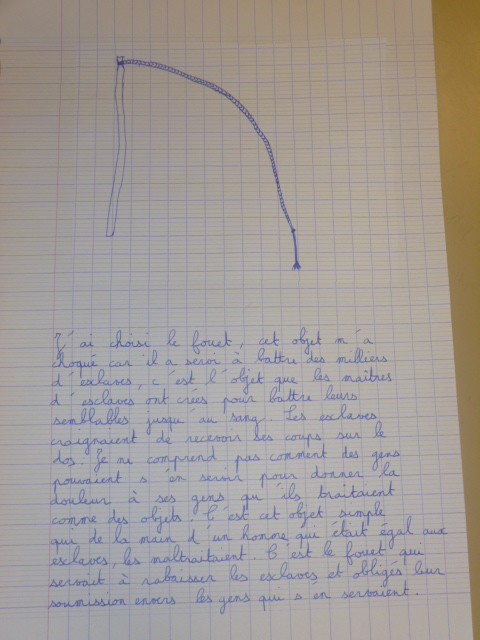 J'ai choisi le fouet, cet objet m'a
choqué car il a servi à battre des milliers
d'esclaves, c'est l'objet que les maîtres
d'esclaves ont crées pour battre leurs
semblables jusqu'au sang. Les esclaves
craignaient de recevoir ses coups sur le
dos. Je ne comprend pas comment des gens
pouvaient s'en servir pour donner la
douleur à ses gens qu'ils traitaient
comme des objets. C'est cet objet simple
qui de la main d'un homme qui était égal aux
esclaves, les maltraitaient. C'est le fouet qui
servait à rabaisser les esclaves et obligés leur
soumission envers les gens qui s'en servaient.